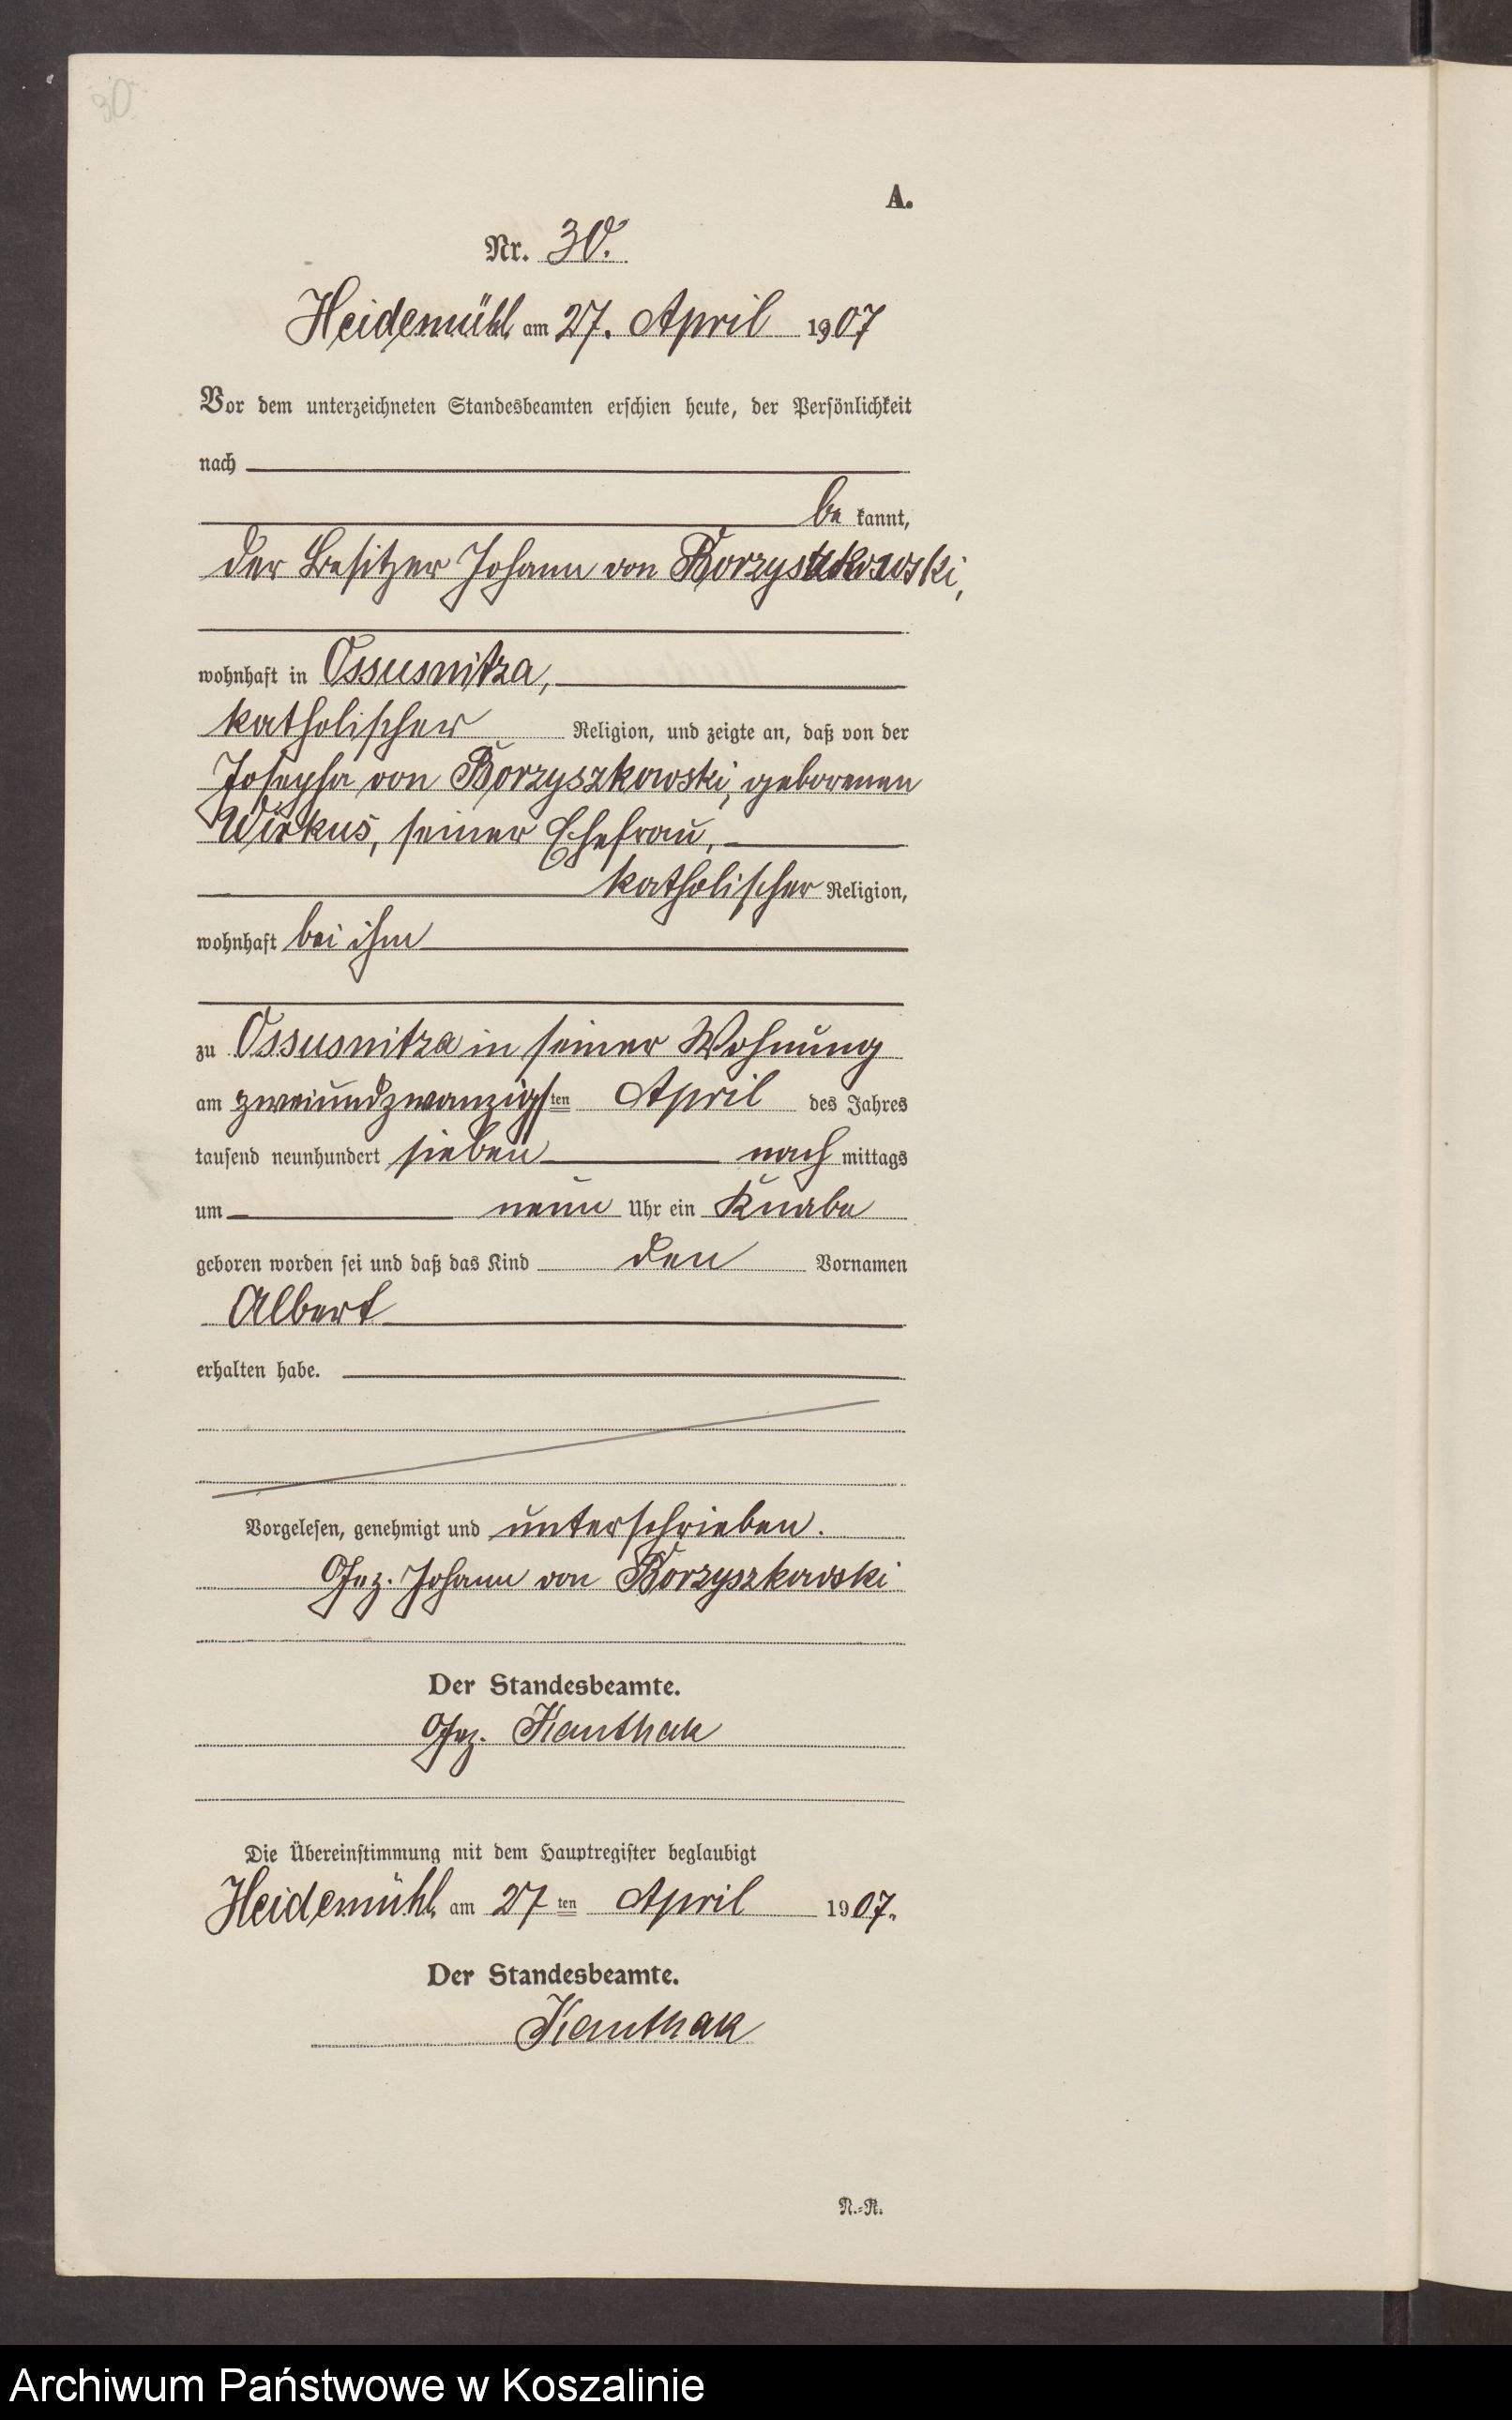 30
A.
Nr. 30.
Heidemühl am 27. April 1907
Vor dem unterzeichneten Standesbeamten erschien heute, der Persönlichkeit
nach
be kannt,
der Besitzer Johann von Borzyszkowski,
wohnhaft in Ossusnitza,
katholischer Religion, und zeigte an, daß von der
Josepha von Borzyszkowski, geborenen
Wirkus, seiner Ehefrau,
katholischer Religion,
wohnhaft bei ihm
zu Ossusnitza in seiner Wohnung
am zweiundzwanzigsten April des Jahres
tausend neunhundert sieben nach mittags
um neun Uhr ein Knabe
geboren worden sei und daß das Kind den Vornamen
Albert
erhalten habe.
Vorgelesen, genehmigt und unterschrieben.
Gez. Johann von Borzyszkowski
Der Standesbeamte.
Gez. Kanthak
Die Übereinstimmung mit dem Hauptregister beglaubigt
Heidemühl am 27 ten April 1907.
Der Standesbeamte.
Kanthak
N.-R.
Archiwum Państwowe w Koszalinie